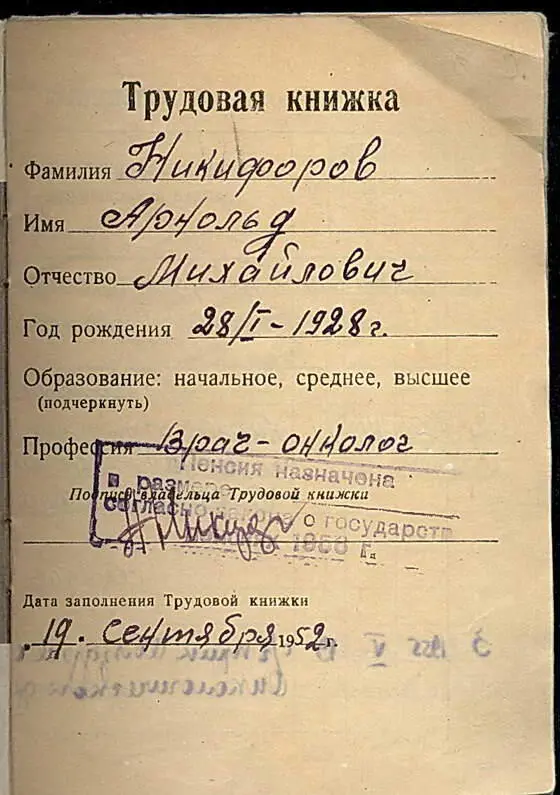 Трудовая книжка
Фамилия Никифоров
Имя Арнольд
Отчество Михайлович
Год рождения 28/I-1928 г.
Образование: начальное, среднее, высшее
(подчеркнуть)
Профессия Врач-онколог
Пенсия назначена
в размере
Подпись владельца Трудовой книжки
согласно закона о государств
1956 г.
Дата заполнения Трудовой книжки
19. сентября 1952 г.